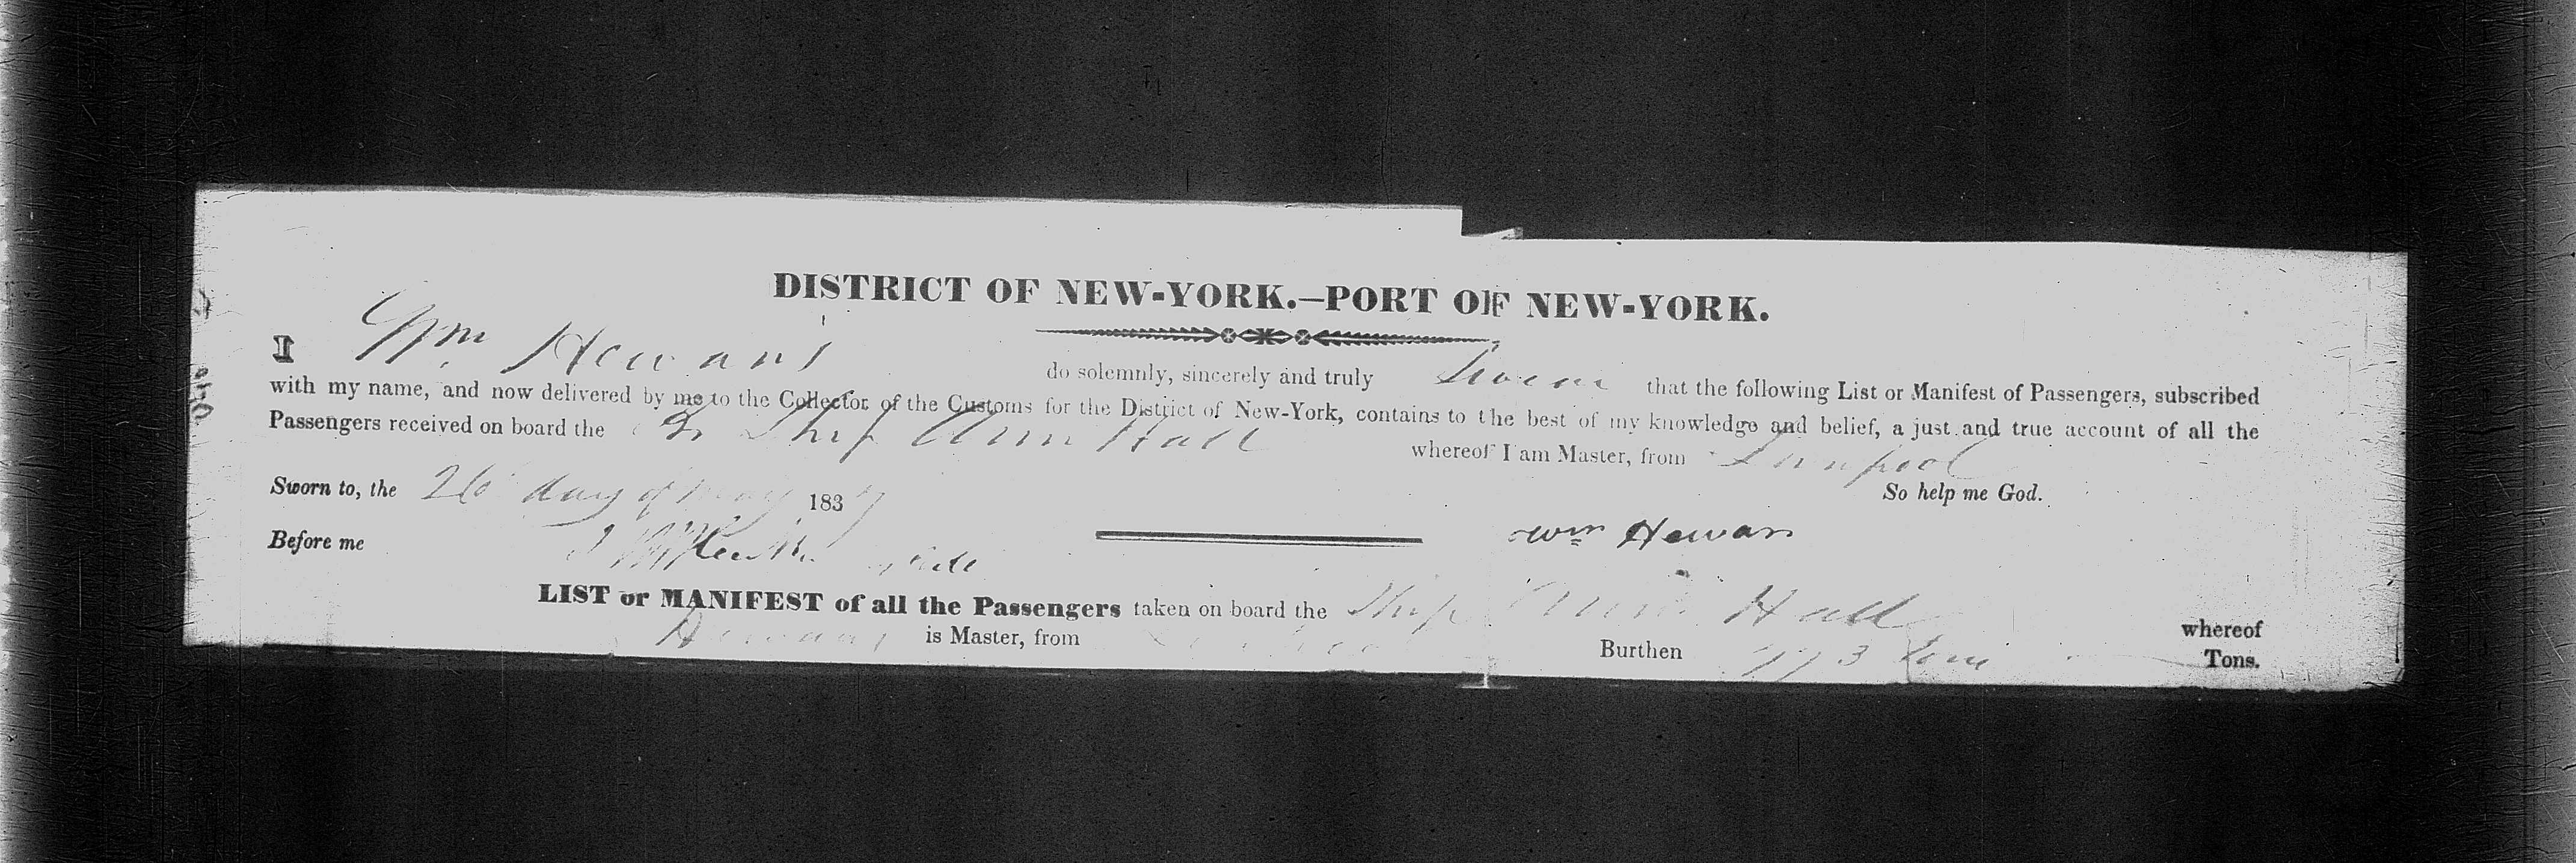 DISTRICT OF NEW-YORK.—PORT OF NEW-YORK.
I Wm Hewans do solemnly, sincerely and truly Swear that the following List or Manifest of Passengers, subscribed
with my name, and now delivered by me to the Collector of the Customs for the District of New-York, contains to the best of my knowledge and belief, a just and true account of all the
Passengers received on board the Br Ship Ann Hall whereof I am Master, from Liverpool
So help me God.
Sworn to, the 26 day of May 1837
Before me
Wm Hewan
LIST or MANIFEST of all the Passengers taken on board the Ship Ann Hall whereof
is Master, from Burthen Tons.